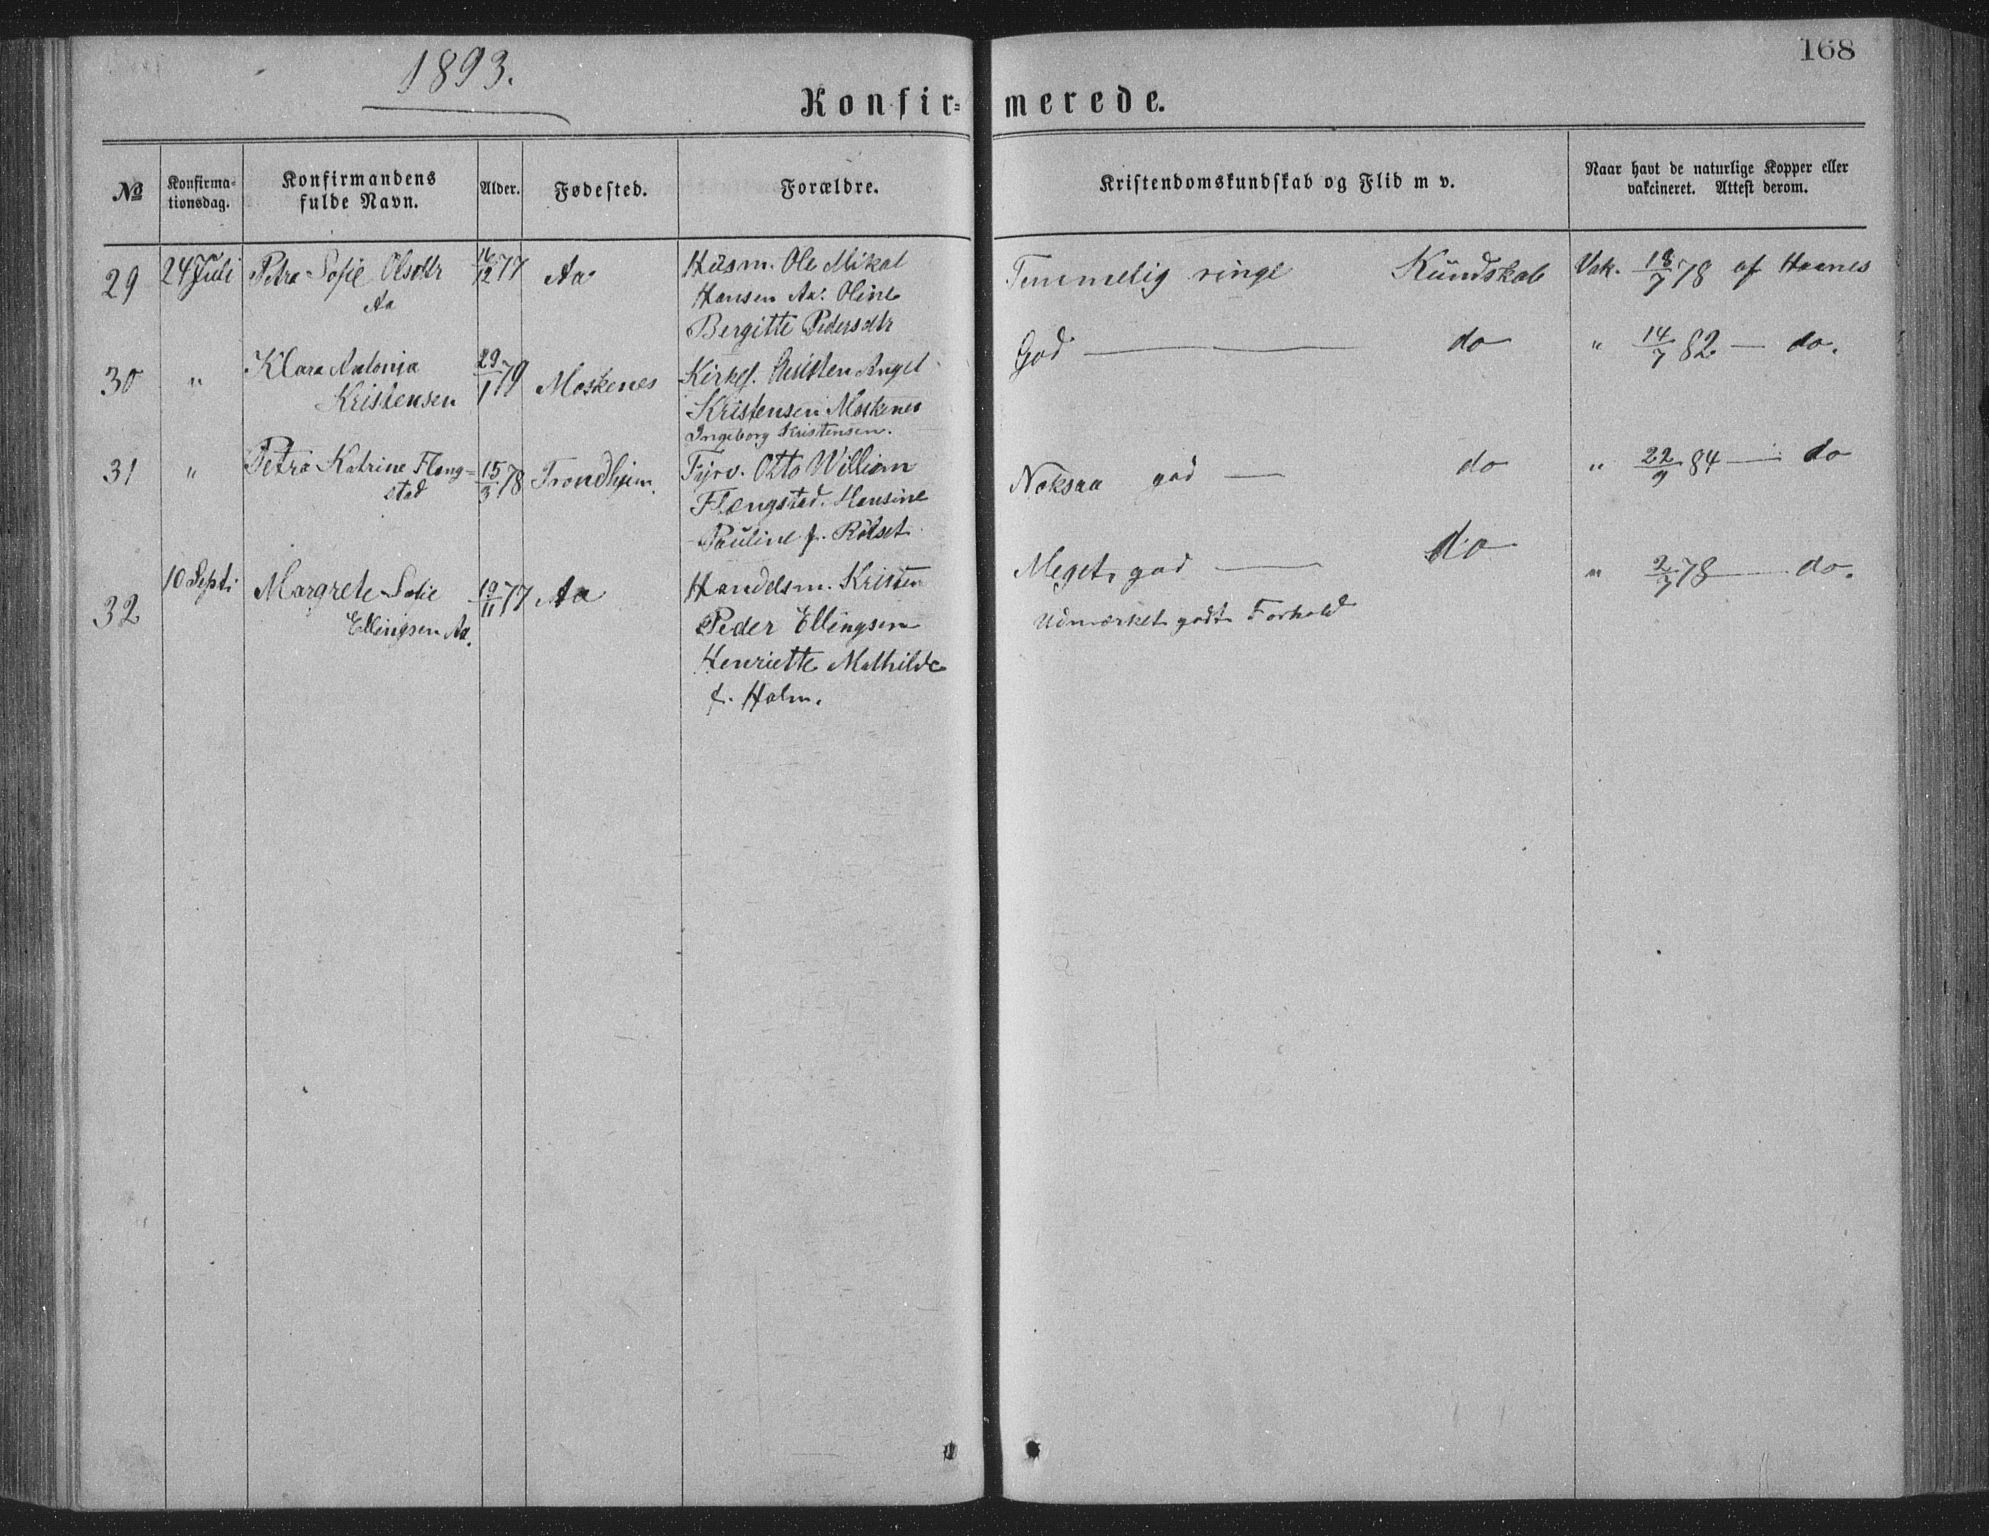 1893.
168
Konfir=
merede.
No
Konfirma-
tionsdag.
Konfirmandens
fulde Navn.
Alder.
Fødested.
Forældre.
Kristendomskundskab og Flid m v.
Naar havt de naturlige Kopper eller
vakcineret. Attest derom.
29 24 Juli Petra Sofie Olsdtr 16/12 77 Aa Husm. Ole Mikal Temmelig ringe Kundskab Vak. 18/7 78 af Haanes
Aa
Hansen Aa. Oline
Bergitte Pedersdtr
30 " Klara Antonia 29/1 79 Moskenes Kirkes. Angel God do " 14/7 82 — do.
Kristensen
Kristensen Moskenes
Ingeborg Kristensen.
31 " Petra Katrine Flæng= 15/3 78 Trondhjem. Fyrv. Otto William Noksaa god — do " 22/9 84 — do
stad
Flængstad. Hansine
Pauline f. Rotset
32 10 Septr Margrete Sofie 19/11 77 Aa Handelsm. Kristen Meget god — do " 2/7 78 — do.
Ellingsen Aa.
Peder Ellingsen Udmærket godt Forhold
Henriette Mathilde
f. Holm.